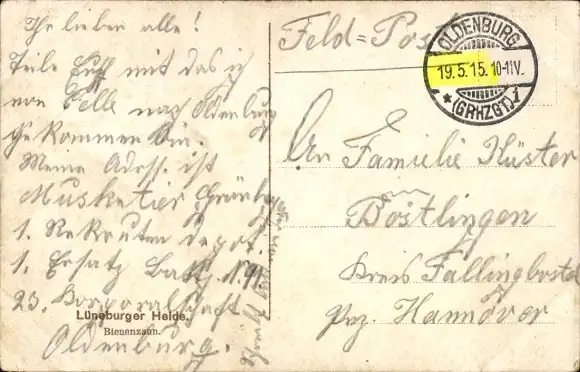 Ihr lieben alle!
teile Euch mit das ich
von Celle nach Oldenburg
gekommen bin.
Meine Adress. ist
Musketier
1. Rekruten Depot.
1. Ersatz Batl. N 91.
23. Korporalschaft
Oldenburg.
Lüneburger Heide.
Bienenzaun.
Feld=Post
OLDENBURG
19.5.15.10-11V.
(GRHZGT).
An Familie Küster
Böstlingen
Kreis Fallingbostel
Prz. Hannover